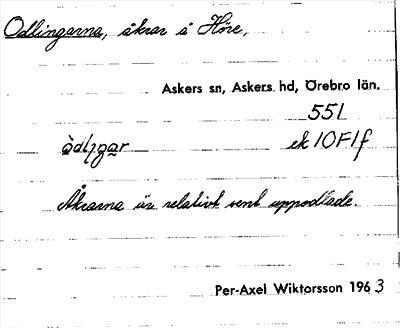 Odlingarna, åkrar å Höre,
Askers sn, Askers hd, Örebro län.
551
ek 10F1f
Åkrarna är relativt sent uppodlade.
Per-Axel Wiktorsson 1963